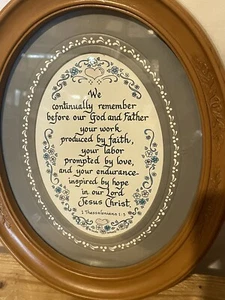 We
continually remember
before our God and Father
your work
produced by faith,
your labor
prompted by love,
and your endurance
inspired by hope
in our Lord
Jesus Christ.
1 Thessalonians 1:3